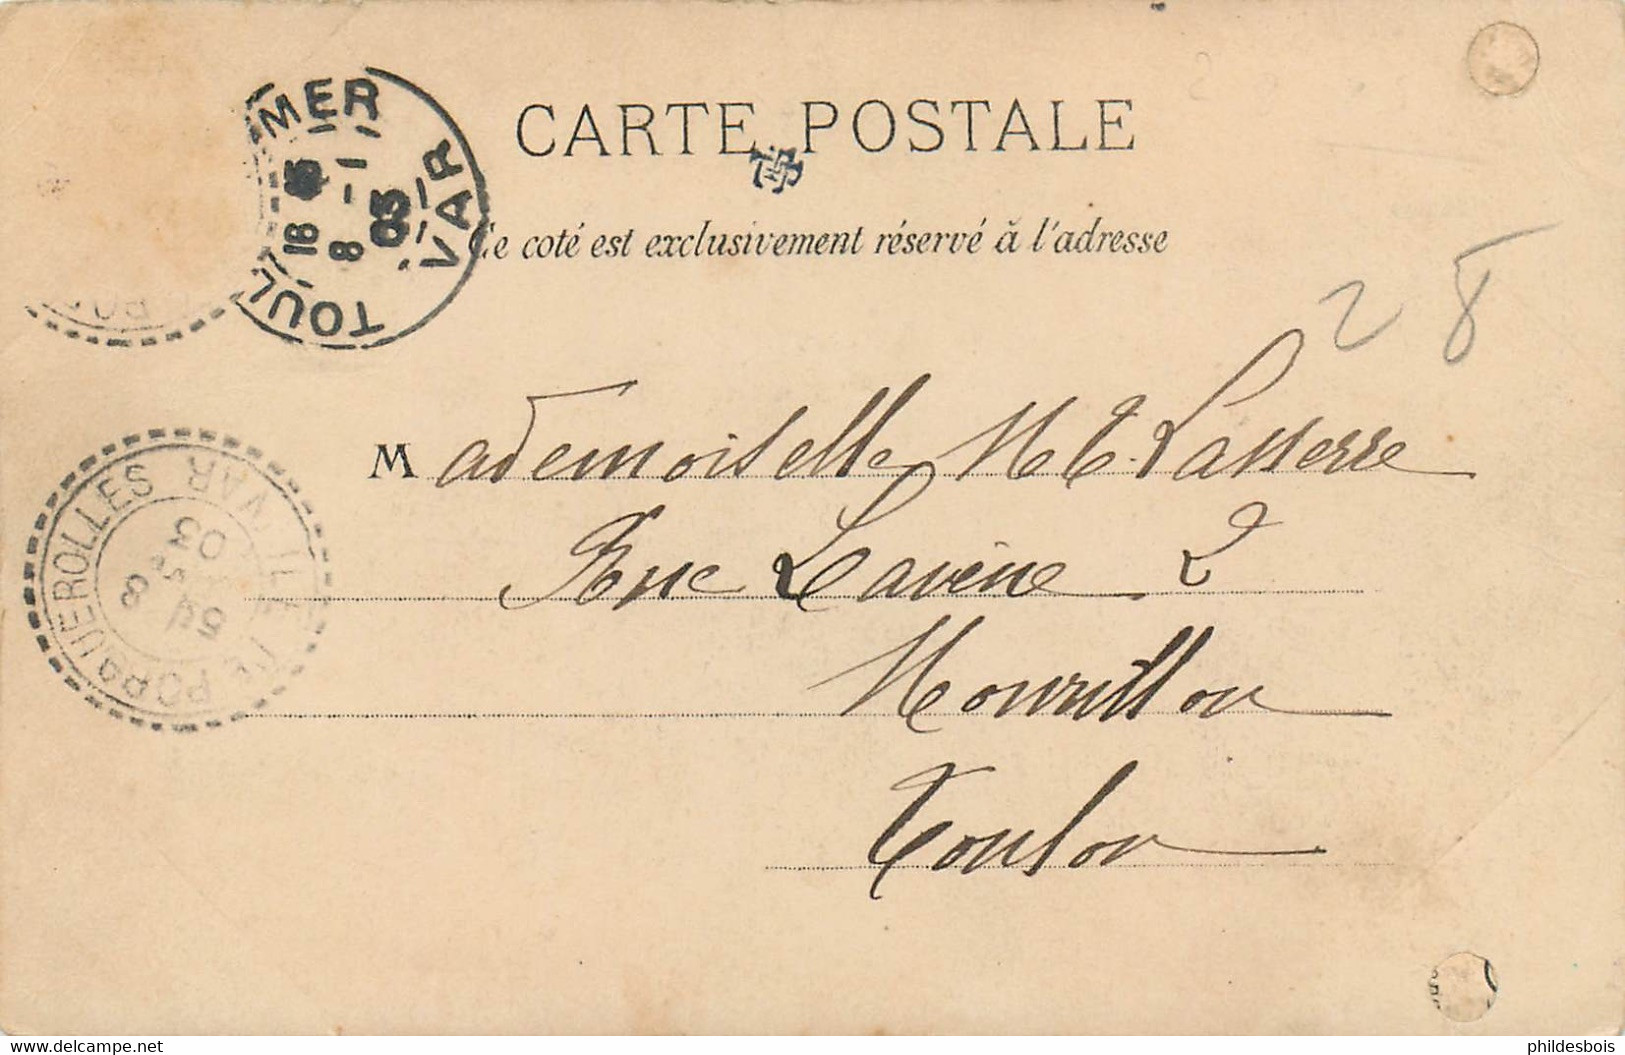 CARTE POSTALE
Ce coté est exclusivement réservé à l'adresse
TOUL MER
VAR
16 45
8 - 1
03
28
Mademoiselle M T. Lasserre
Rue Lavène 2
Mourillon
Toulon
PORQUEROLLES VAR
8
03
www.delcampe.net
phildesbois